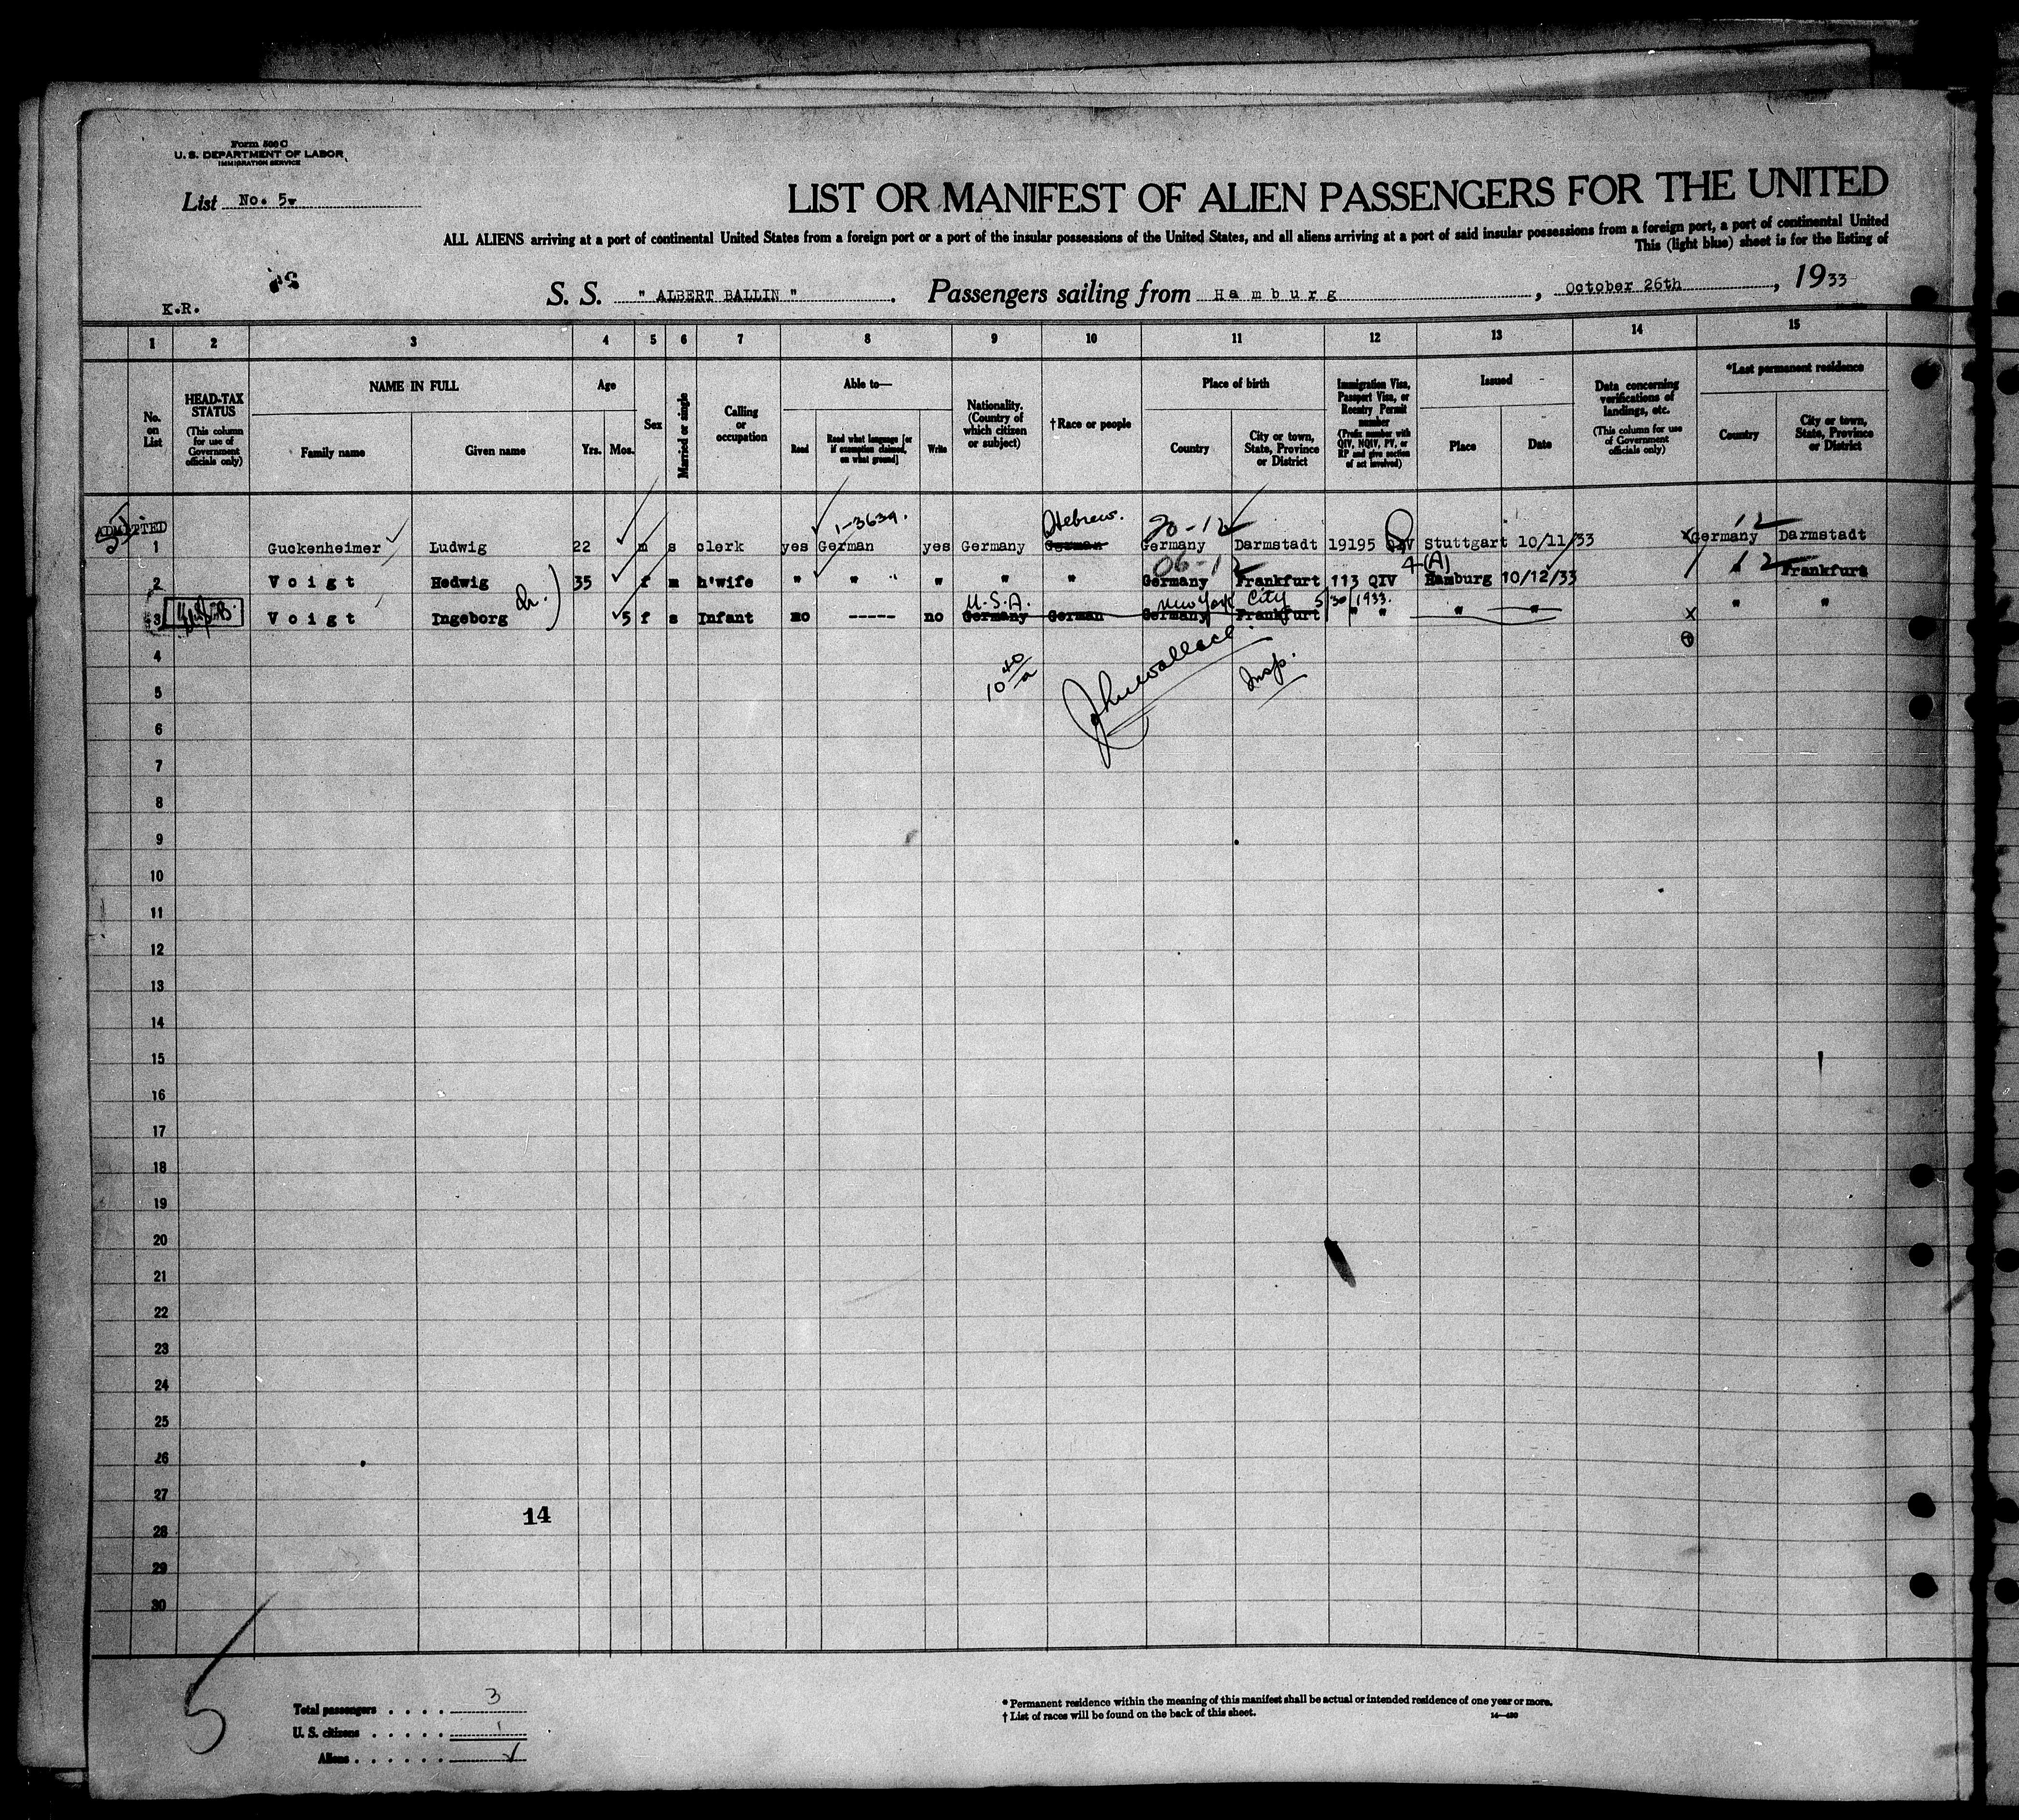 Form 500 C
U. S. DEPARTMENT OF LABOR
IMMIGRATION SERVICE
List No. 5
LIST OR MANIFEST OF ALIEN PASSENGERS FOR THE UNITED
ALL ALIENS arriving at a port of continental United States from a foreign port or a port of the insular possessions of the United States, and all aliens arriving at a port of said insular possessions from a foreign port, a port of continental United
This (light blue) sheet is for the listing of
K.R.
S. S. " ALBERT BALLIN " . Passengers sailing from Hamburg , October 26th , 1933
1 2 3 4 5 6 7 8 9 10 11 12 13 14 15
No. on List
HEAD-TAX STATUS (This column for use of Government officials only)
NAME IN FULL
Family name Given name
Age
Yrs. Mos.
Sex
Married or single
Calling or occupation
Able to—
Read Read what language [or if exemption claimed, on what ground] Write
Nationality. (Country of which citizen or subject)
†Race or people
Place of birth
Country City or town, State, Province or District
Immigration Visa, Passport Visa, or Reentry Permit number (Prefix number with QIV, NQIV, PV, or RP and give section of act involved)
Issued
Place Date
Data concerning verifications of landings, etc. (This column for use of Government officials only)
*Last permanent residence
Country City or town, State, Province or District
ADMITTED
1-3634. Hebrew. 20-12 12
1 Guckenheimer Ludwig 22 m s clerk yes German yes Germany German Germany Darmstadt 19195 QIV Stuttgart 10/11/33 x Germany Darmstadt
06-12 4(A) 12
2 Voigt Hedwig 35 f m h'wife " " " " " Germany Frankfurt 113 QIV Hamburg 10/12/33 Frankfurt
U.S.A. New York City 5/30/1933.
3 Voigt Ingeborg 5 f s Infant no ----- no Germany German Germany Frankfurt " " " " x " "
4
10 40/a John Wallace Insp.
5
6
7
8
9
10
11
12
13
14
15
16
17
18
19
20
21
22
23
24
25
26
27
14
28
29
30
5
Total passengers . . . . 3
U. S. citizens . . . . . 1
Aliens . . . . . .
* Permanent residence within the meaning of this manifest shall be actual or intended residence of one year or more.
† List of races will be found on the back of this sheet.
14—480